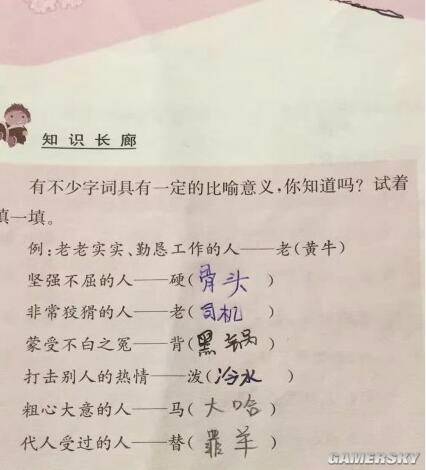 知识长廊
有不少字词具有一定的比喻意义,你知道吗？试着
填一填。
例:老老实实、勤恳工作的人——老(黄牛)
坚强不屈的人——硬(骨头)
非常狡猾的人——老(司机)
蒙受不白之冤——背(黑锅)
打击别人的热情——泼(冷水)
粗心大意的人——马(大哈)
代人受过的人——替(罪羊)
GAMERSKY